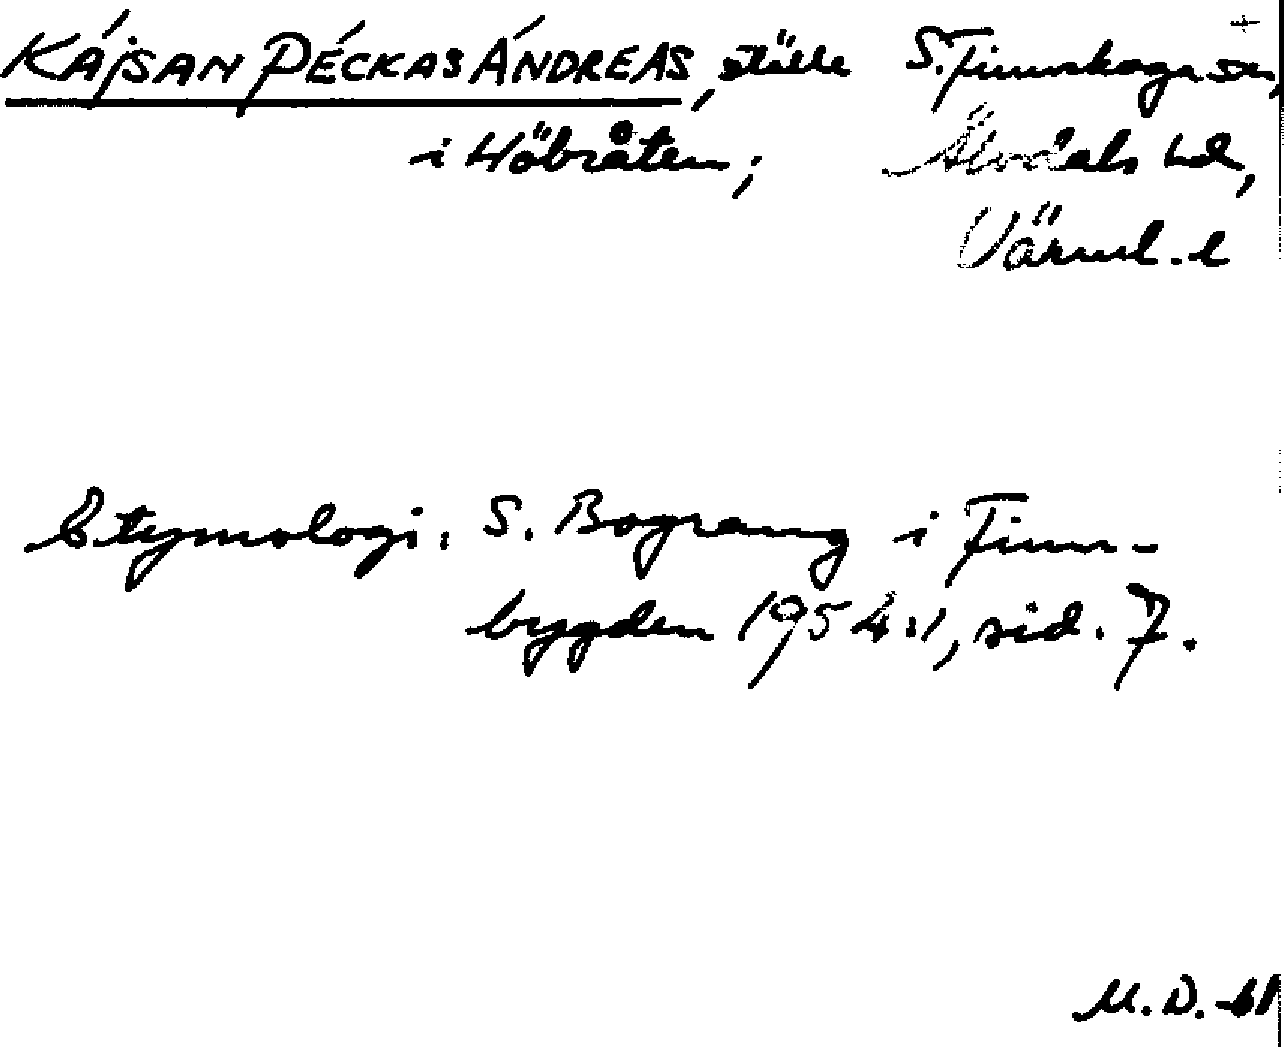 KÁJSAN PÉCKAS ÁNDREAS, ställe S. Finnskoga sn,
i Höbråten; Älvdals hd,
Värml. l
Etymologi: S. Bograng i Finn-
bygden 1954:1, sid. 7.
M.D. -61